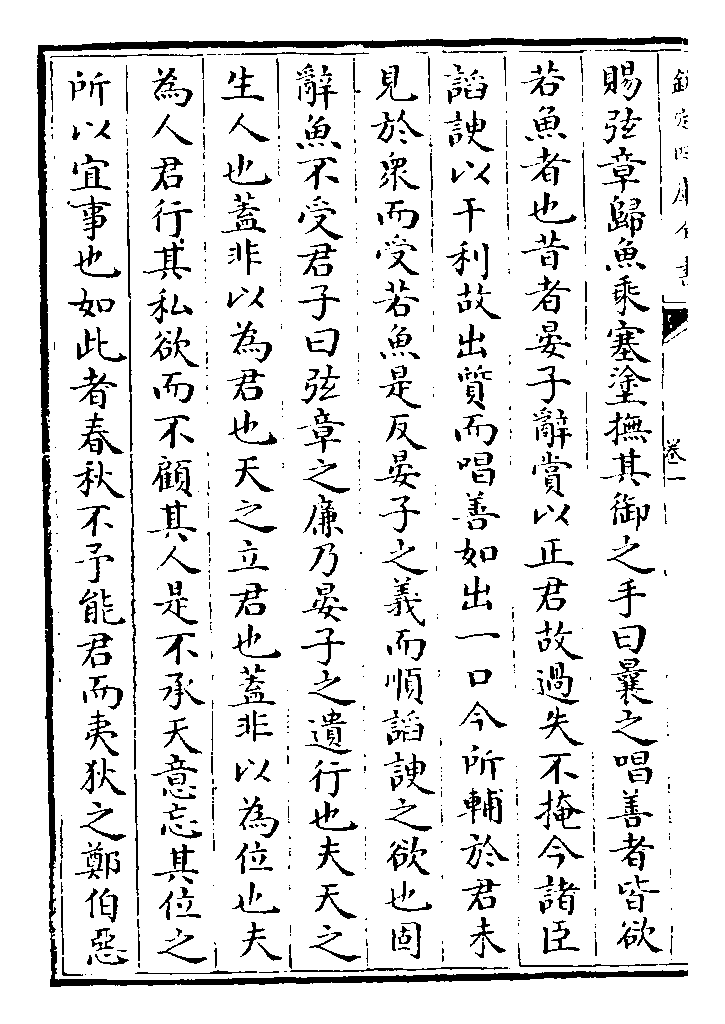 欽定四庫全書
卷一
賜弦章歸魚乘塞塗撫其御之手曰曩之唱善者皆欲
若魚者也昔者晏子辭賞以正君故過失不掩今諸臣
謟諛以干利故出質而唱善如出一口今所輔於君未
見於衆而受若魚是反晏子之義而順謟諛之欲也固
辭魚不受君子曰弦章之廉乃晏子之遺行也夫天之
生人也蓋非以為君也天之立君也蓋非以為位也夫
為人君行其私欲而不顧其人是不承天意忘其位之
所以宜事也如此者春秋不予能君而夷狄之鄭伯惡